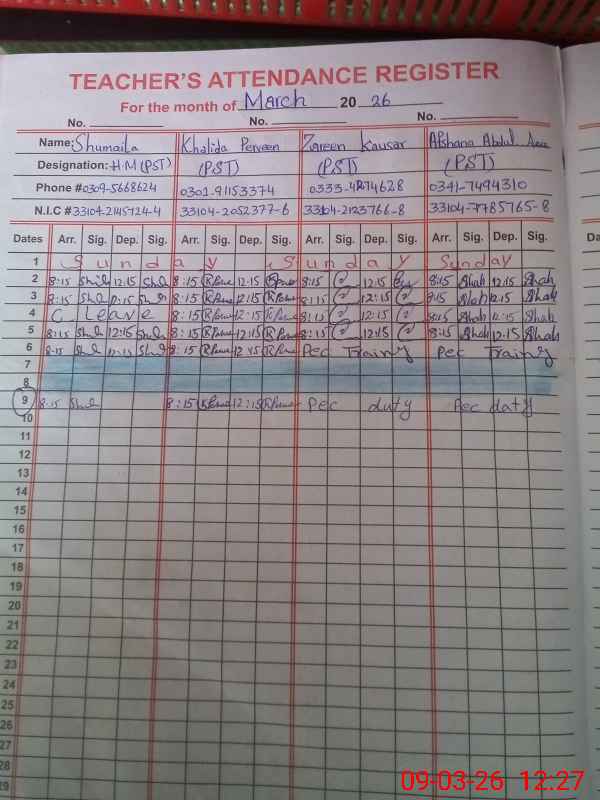 TEACHER'S ATTENDANCE REGISTER
For the month of March 20 26
No. No. No.
Name: Shumaila Khalida Perveen Zareen Kausar Afshana Abdul
Designation: H.M (PST) (PST) (PST) (PST)
Phone # 0309-5668624 0301-91153374 0333-4274628 0341-7494310
N.I.C # 33104-2145724-4 33104-2052377-6 33104-2123766-8 33104-7785765-8
Dates Arr. Sig. Dep. Sig. Arr. Sig. Dep. Sig. Arr. Sig. Dep. Sig. Arr. Sig. Dep. Sig. Da
1 Sunday Sunday Sunday
2 8:15 12:15 8:15 12:15 8:15 12:15 8:15 Shah 12:15 Shah
3 8:15 12:15 8:15 12:15 8:15 12:15 8:15 Shah 12:15 Shah
4 C. Leave 8:15 12:15 8:15 12:15 8:15 Shah 12:15 Shah
5 8:15 12:15 8:15 12:15 8:15 12:15 8:15 Shah 12:15 Shah
6 8:15 12:15 8:15 12:15 Pec Trainy Pec Trainy
7
8
9 8:15 8:15 12:15 Pec duty Pec duty
10
11
12
13
14
15
16
17
18
19
20
21
22
23
24
25
26
27
28
29
09-03-26 12:27